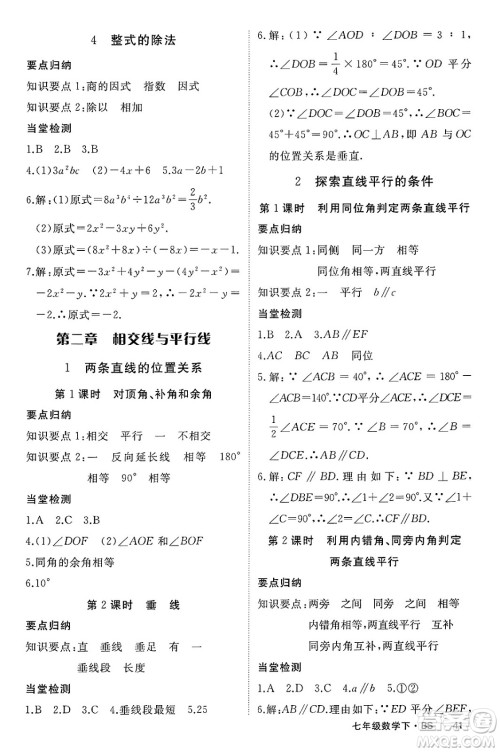 4 整式的除法
要点归纳
知识要点1:商的因式 指数 因式
知识要点2:除以 相加
当堂检测
1.B 2.B 3.A
4.(1)3a²b²c (2)4a²b² 5.2x-3
6.解:(1)原式=6a²b÷9ab=2/3a.
(2)原式=4x²-2xy+y².
(3)原式=(8x³-4x²)÷(-4x)=-2x²+x.
7.解:原式=3x²+4x-x²+2x-(4x²-1)=
-2x²+6x+1.
第二章 相交线与平行线
1 两条直线的位置关系
第1课时 对顶角、补角和余角
要点归纳
知识要点1:相交 平行 一 不相交
知识要点2:一 反向延长线 相等 180°
相等 90° 相等
当堂检测
1.A 2.D 3.C 4.(1)∠DOF (2)∠AOD
5.同角的余角相等
6.10°
第2课时 垂 线
要点归纳
知识要点:直 垂线 垂足 一 垂线段
垂线段 长度
当堂检测
1.B 2.B 3.A 4.垂线段最短 5.25
6.解:(1)∵∠AOD∶∠DOB=3∶1,
∴∠DOB=1/4×180°=45°.∵OD平分
∠COB,∴∠COD=∠DOB=45°.
(2)∵∠AOC=180°-∠COD-∠DOB=
180°-45°-45°=90°.∴OC⊥AB,即AB与OC
的位置关系是垂直.
2 探索直线平行的条件
第1课时 利用同位角判定两条直线平行
要点归纳
知识要点1:同侧 同一方 相等
同位角相等,两直线平行
知识要点2:一 平行 b∥c
当堂检测
1.B 2.A 3.AB∥EF
4.AC BC AC 同位
5.解:∵∠ACE=∠AEC,∠ACE+
∠AEC=140°.∵CD平分∠ACE,∴∠DCE=
1/2∠ACE=70°.∵∠ABF=70°,∴∠ABF=
∠DCE.∴AB∥CD.
6.解:CF∥BD.理由如下:∵BD⊥BE,
∴∠DBE=90°.∵∠1+∠2+∠DBE=180°,
∴∠1+∠2=90°.∵∠1+∠C=90°,∴∠2=
∠C.∴CF∥BD.
第2课时 利用内错角、同旁内角判定
两条直线平行
要点归纳
知识要点:两旁 之间 同旁 之间
内错角相等,两直线平行 互补
同旁内角互补,两直线平行
当堂检测
1.B 2.A 3.A 4.A 5.①②
6.解:AB∥CD.理由如下:∵ED平分∠BEF,
七年级数学下·BS